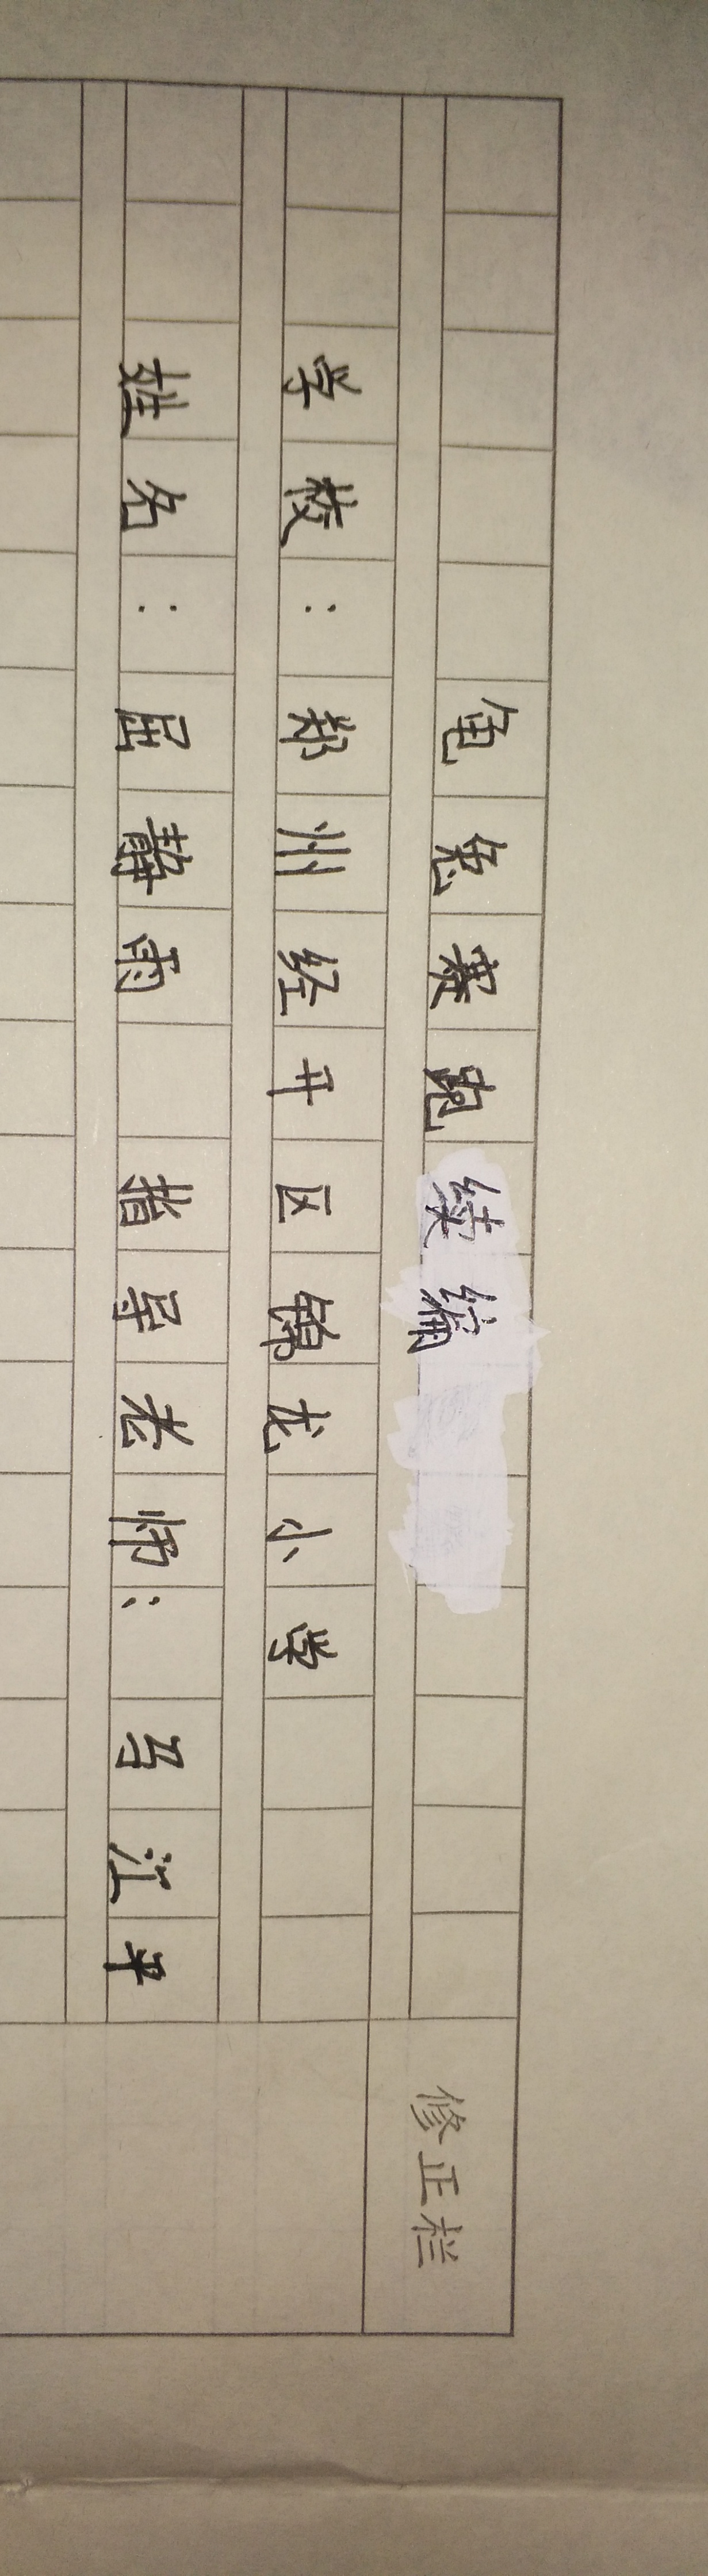 龟兔赛跑续编
修正栏
学校：郑州经开区锦龙小学
姓名：屈静雨 指导老师：马江平